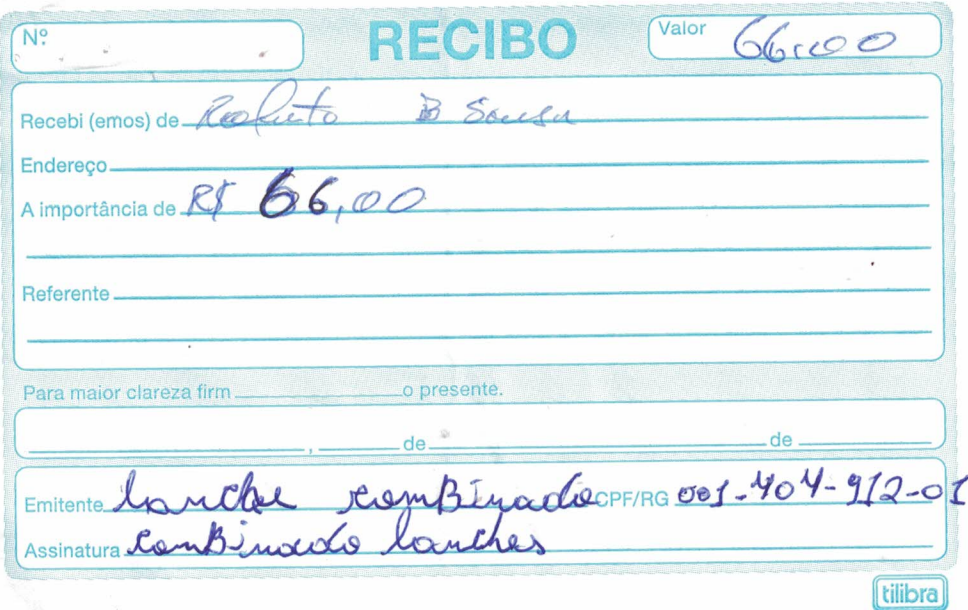 Nº RECIBO Valor 66,00
Recebi (emos) de Roberto B Sousa
Endereço
A importância de R$ 66,00
Referente
Para maior clareza firm o presente.
, de de
Emitente Lanche comBinado CPF/RG 001-404-912-01
Assinatura ComBinado lanches
tilibra